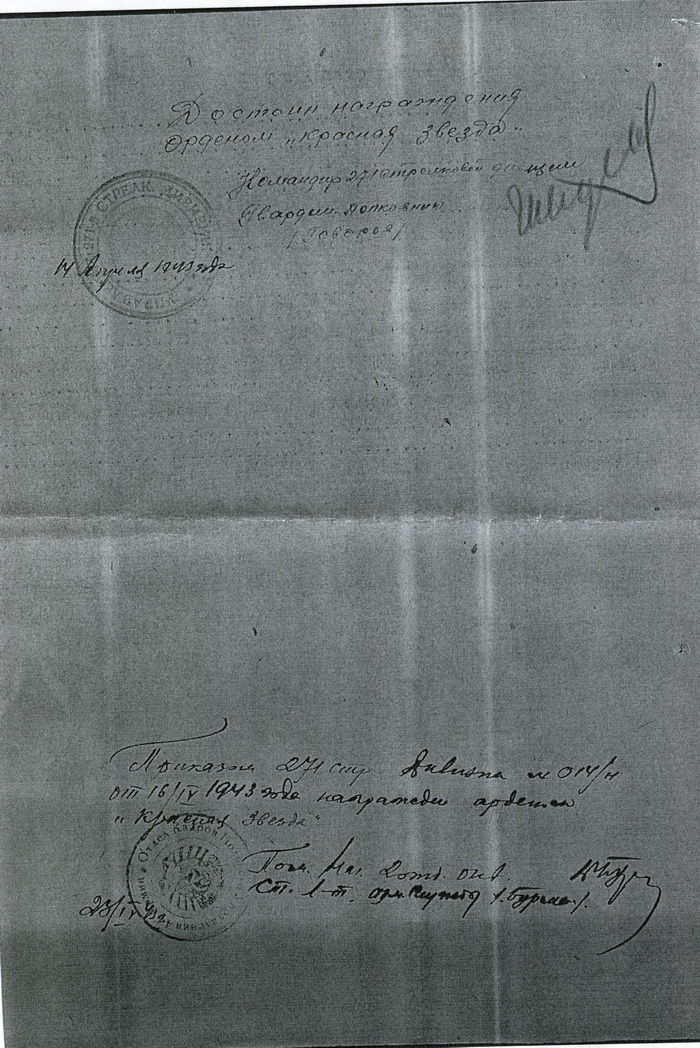 Достоин награждения
Орденом „Красная Звезда"
Командир 271 стрелковой дивизии
Гвардии Полковник
/Говоров/
271Я СТРЕЛК. ДИВИЗИЯ
УПРАВЛ
14 Апреля 1943 года
Приказом 271 стр. Дивизии № 014/н
от 16/IV 1943 года награжден орденом
"Красная Звезда"
Отдел Кадров
Пом. Нач. 2 отд.
Ст. л-т. адм. службы
23/IV 43 г.